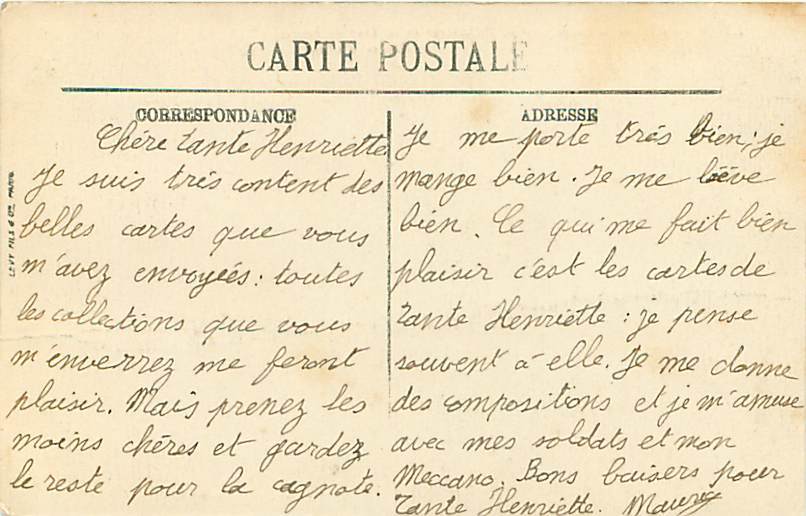 CARTE POSTALE
CORRESPONDANCE
Chére tante Henriette
Je suis trés content des
belles cartes que vous
m'avez envoyéés : toutes
les collections que vous
m'enverrez me feront
plaisir. Mais prenez les
moins chéres et gardez
le reste pour la cagnote.
ADRESSE
Je me porte trés bien; je
mange bien. Je me lève
bien. Ce qui me fait bien
plaisir c'est les cartes de
tante Henriette : je pense
souvent à elle. Je me donne
des compositions et je m'amuse
avec mes soldats et mon
Meccano. Bons baisers pour
tante Henriette. Maurice
LEVY FILS & CIE PARIS